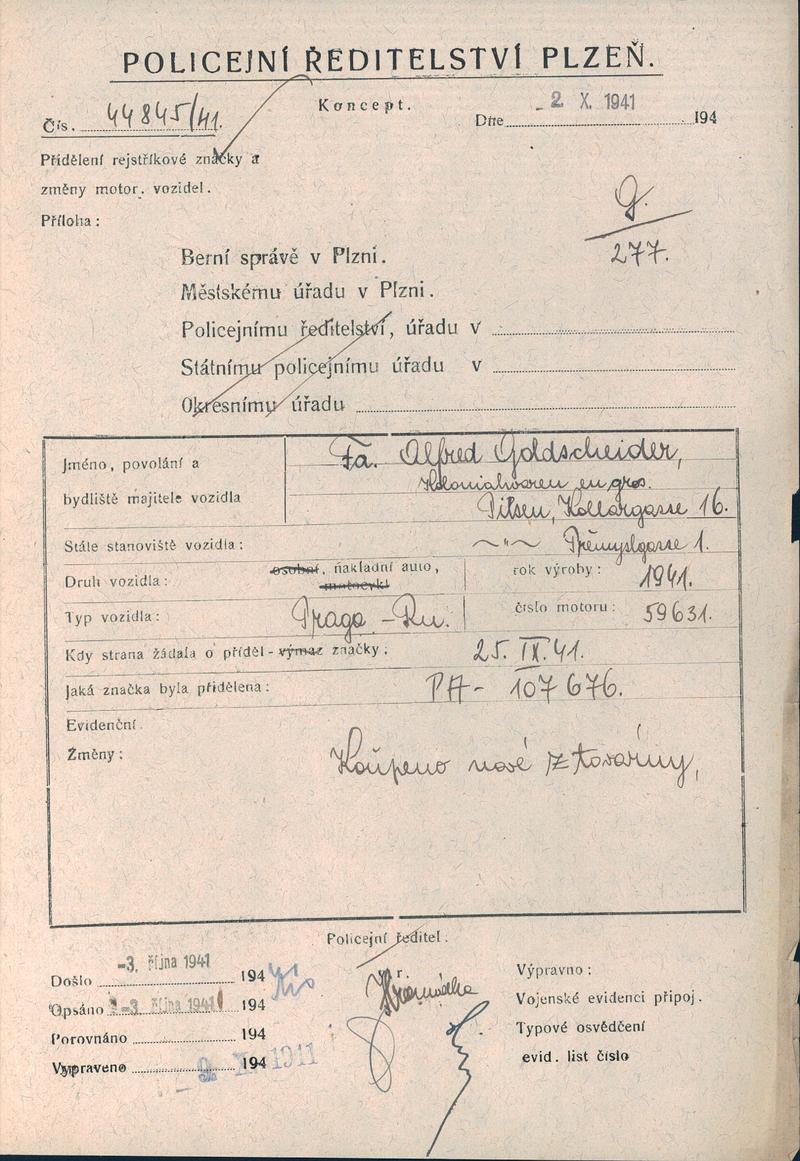 POLICEJNÍ ŘEDITELSTVÍ PLZEŇ.
Koncept.
- 2 X. 1941
Čís. 44845/41.
Dne 194
Přidělení rejstříkové značky a
změny motor. vozidel.
Příloha:
9.
277.
Berní správě v Plzni.
Městskému úřadu v Plzni.
Policejnímu ředitelství, úřadu v
Státnímu policejnímu úřadu v
Okresnímu úřadu
Jméno, povolání a
bydliště majitele vozidla
Fa. Alfred Goldscheider,
Kolonialwaren en gros.
Pilsen, Kollargasse 16.
Stálé stanoviště vozidla: ~"~ Přemyslgasse 1.
Druh vozidla: osobní, nákladní auto, motocykl
rok výroby: 1941.
Typ vozidla: Praga - Rn.
číslo motoru: 59631.
Kdy strana žádala o příděl - výmaz značky: 25. IX. 41.
Jaká značka byla přidělena: PA - 107676.
Evidenční
Změny: Koupeno nové z továrny,
Policejní ředitel.
-3. října 1941
Došlo 194
Opsáno -3 října 1941 194
Porovnáno 194
Vypraveno 194
Výpravno:
Vojenské evidenci připoj.
Typové osvědčení
evid. list číslo